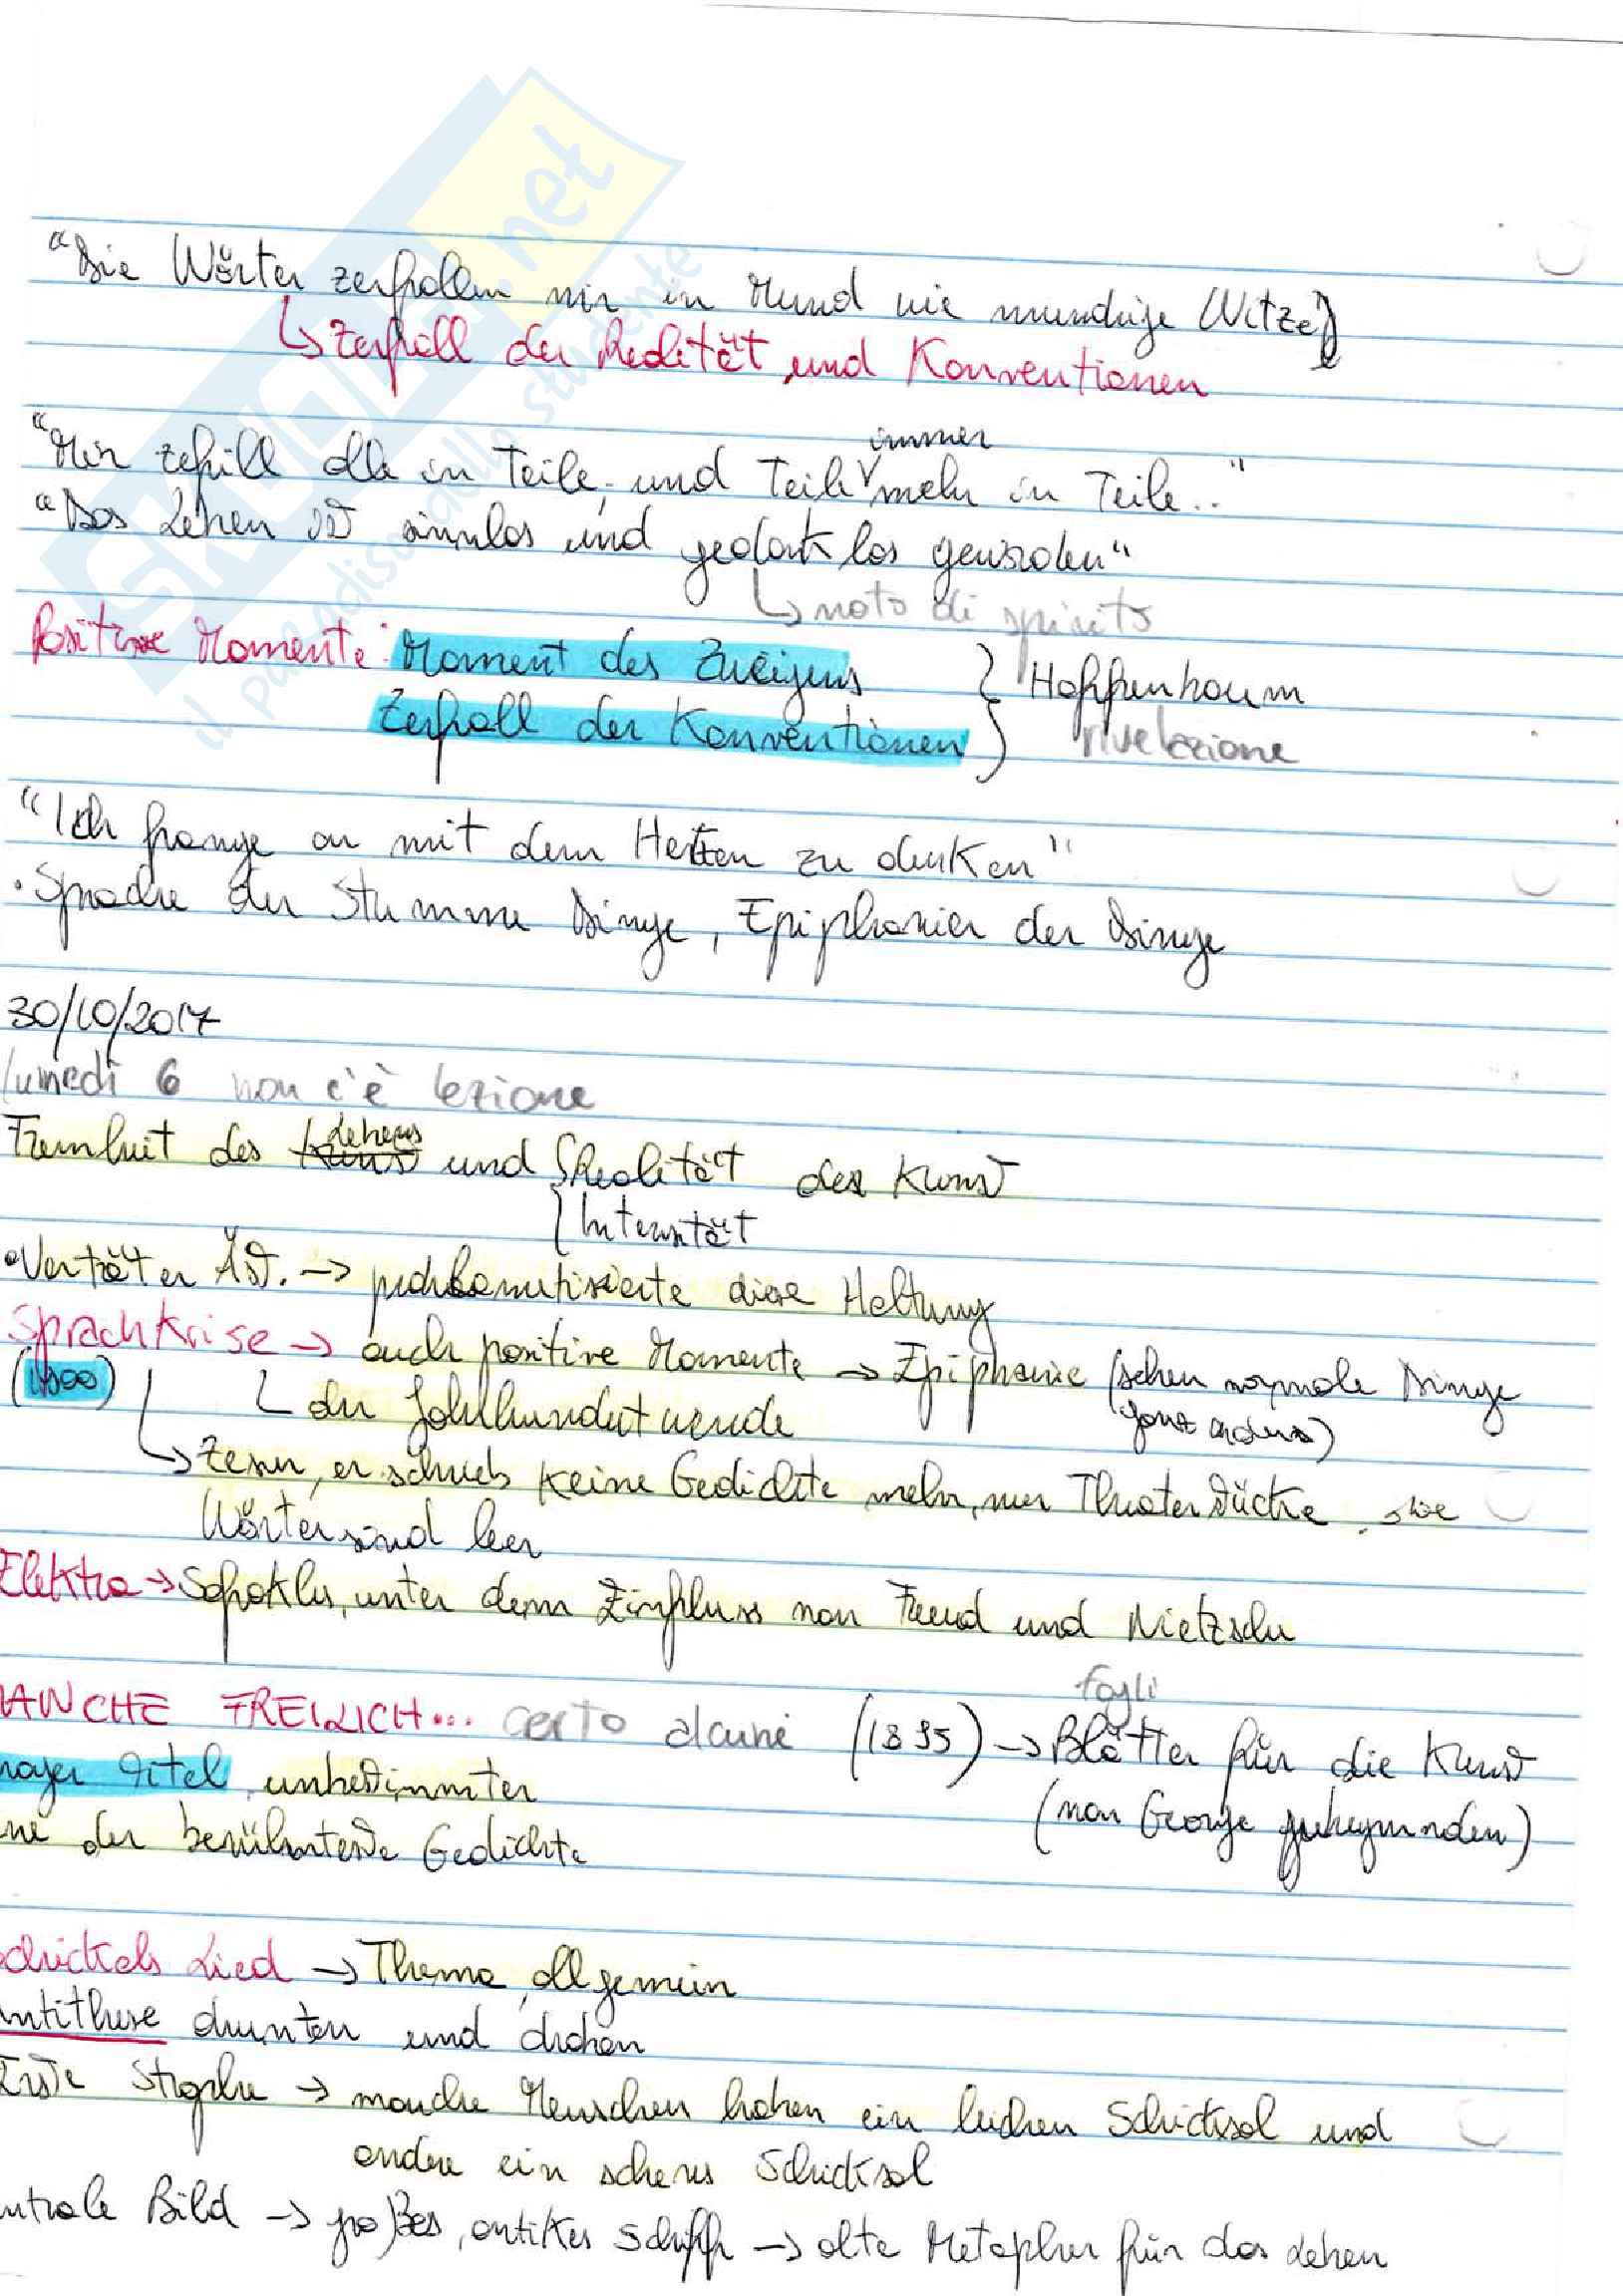 SKUOLA.net
il paradiso dello studente
"Die Wörter zerfallen mir im Mund wie Witze
↳ Zerfall der Realität und Konventionen
immer
"Mir zefill alle in Teile, und Teile mehr in Teile.."
"Das Leben ist sinnlos und gedank los geworden"
↳ moto di spirito
Positive Momente: Moment des Zweigens } Hoffenbaum
Zerfall der Konventionen } rivelazione
"Ich fange an mit dem Herzen zu denken"
• Sprache der Stumme Dinge, Epiphanien der Dinge
30/10/2017
lunedì 6 non c'è lezione
Lebens
Fremheit des Kunst und { Realität der Kunst
{ Intensität
• Verträter Äst. → problematisierte diese Haltung
Sprachkrise → auch positive Momente → Epiphanie (sehen normale Dinge
(1900) ↳ der Jahrhundertwende ganz anders)
↳ er schrieb keine Gedichte mehr, nur Theaterstücke
Wörter sind leer
Elektra → Sophokles, unter dem Einfluss von Freud und Nietzsche
fogli
ANCHE FREILICH... certo alcuni (1895) → Blätter für die Kunst
vager titel, unbestimmter (von George gehegrunden)
ne der berühmteste Gedichte
chickals Lied → Thema allgemein
ntithese drunten und droben
Erste Strophe → manche Menschen haben ein leichen Schicksal und
andere ein scheres Schicksal
ntrale Bild → großes, antikes Schiff → alte Metapher für das Leben